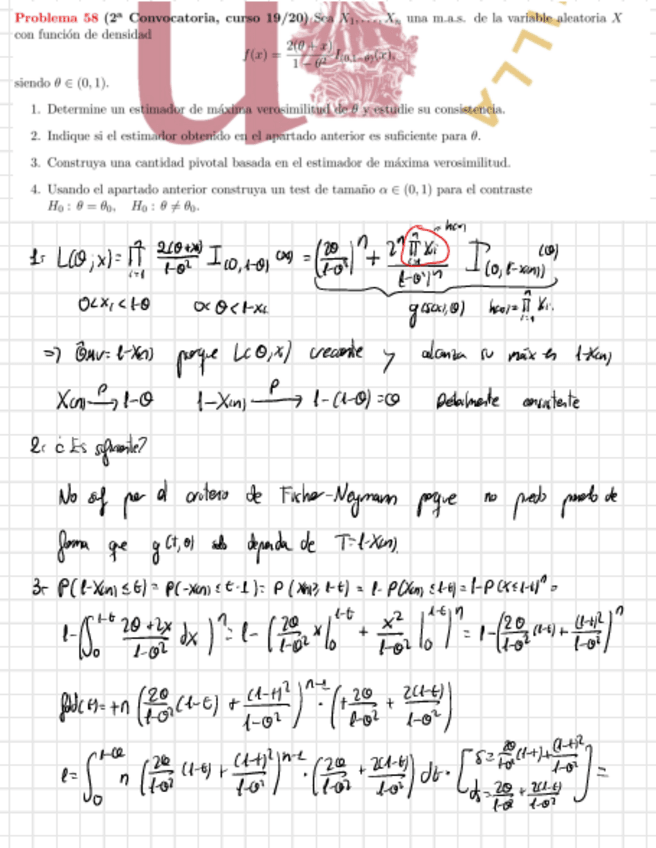 Problema 58 (2ª Convocatoria, curso 19/20) Sea X₁, ..., Xₙ una m.a.s. de la variable aleatoria X
con función de densidad
f(x) = 2(θ + x)/(1 − θ²) I₍₀,₁₋θ₎(x),
siendo θ ∈ (0, 1).
1. Determine un estimador de máxima verosimilitud de θ y estudie su consistencia.
2. Indique si el estimador obtenido en el apartado anterior es suficiente para θ.
3. Construya una cantidad pivotal basada en el estimador de máxima verosimilitud.
4. Usando el apartado anterior construya un test de tamaño α ∈ (0, 1) para el contraste
H₀ : θ = θ₀, H₀ : θ ≠ θ₀.
LLA
1. L(θ; x) = ∏ᵢ₌₁ⁿ 2(θ+xᵢ)/(1-θ²) I(0,1-θ) = (2θ/(1-θ²))ⁿ + 2ⁿ ∏ xᵢ/(1-θ²)ⁿ I(0,1-x(n)) (θ)
0<xᵢ<1-θ 0<θ<1-xᵢ g(s(x),θ) h(x)= ∏ᵢ₌₁ⁿ xᵢ
=> θ̂MV = 1-X(n) porque L(θ,x) creciente y alcanza su máx en 1-X(n)
X(n) →ᴾ 1-θ 1-X(n) →ᴾ 1-(1-θ) = θ Débilmente consistente
2. ¿Es suficiente?
No por el criterio de Ficher-Neymann porque no puedo de
forma que g(t,θ) dependa de T=1-X(n)
3- P(1-X(n) ≤ t) = P(-X(n) ≤ t-1) = P(X(n) ≥ 1-t) = 1-P(X(n) ≤ 1-t) = 1-P(X≤1-t)ⁿ =
1-(∫₀¹⁻ᵗ (2θ+2x)/(1-θ²) dx)ⁿ = 1-(2θ/(1-θ²) x|₀¹⁻ᵗ + x²/(1-θ²)|₀¹⁻ᵗ)ⁿ = 1-(2θ/(1-θ²) (1-t) + (1-t)²/(1-θ²))ⁿ
(t) = +n (2θ/(1-θ²) (1-t) + (1-t)²/(1-θ²))ⁿ⁻¹ · (+2θ/(1-θ²) + 2(1-t)/(1-θ²))
1 = ∫₀¹⁻θ n (2θ/(1-θ²) (1-t) + (1-t)²/(1-θ²))ⁿ⁻¹ · (2θ/(1-θ²) + 2(1-t)/(1-θ²)) dt · [s = 2θ/(1-θ²) (1-t) + (1-t)²/(1-θ²)
ds = 2θ/(1-θ²) + 2(1-t)/(1-θ²)] =